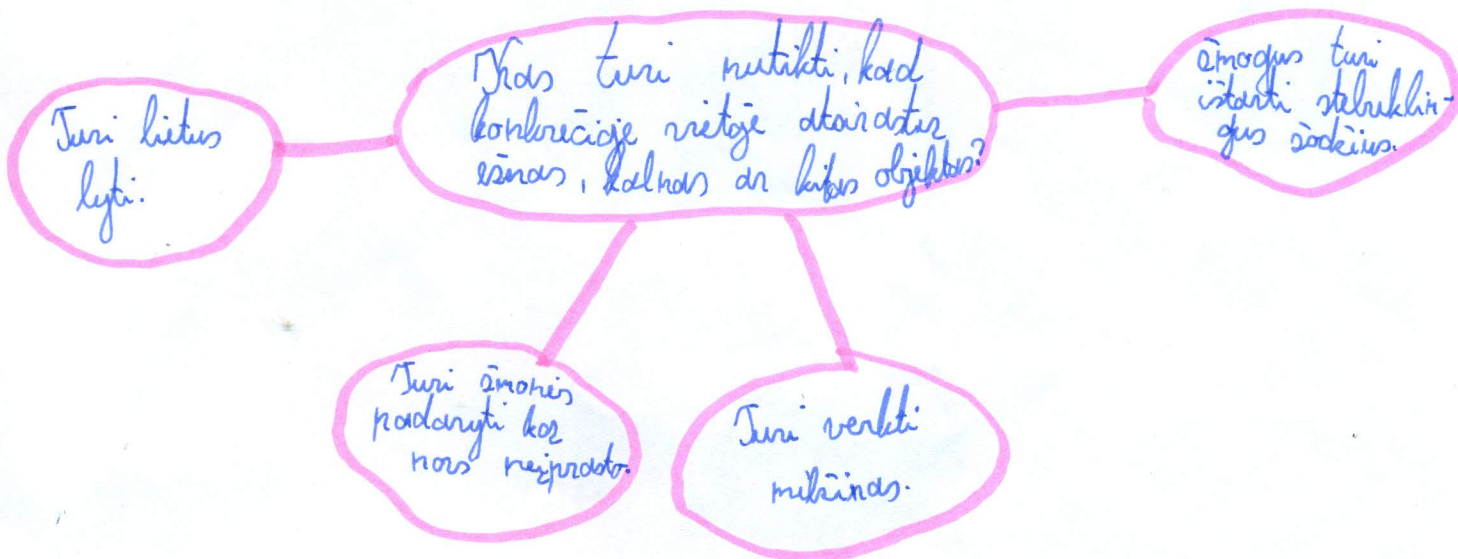 Kas turi nutikti, kad
konkrečioje vietoje atsirastų
ežeras, kalnas ar kitas objektas?
Turi lietus
lyti.
žmogus turi
ištarti stebuklin-
gus žodžius.
Turi žmonės
padaryti ką
nors neįprasto.
Turi verkti
milžinas.